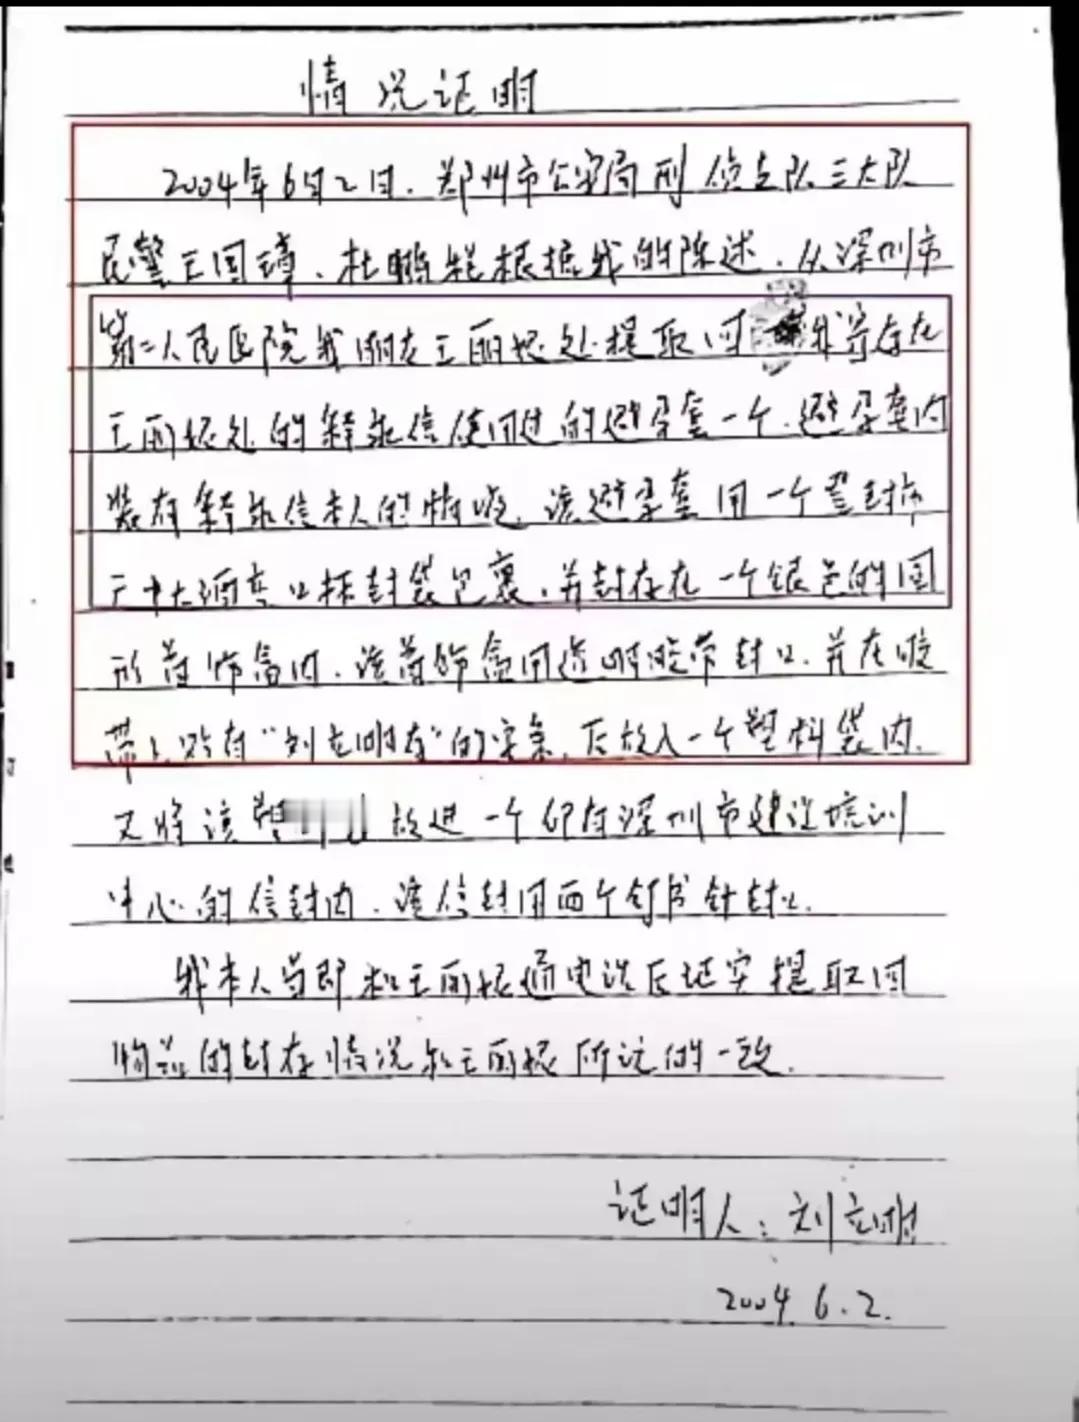 情况证明
2004年6月2日，郑州市公安局刑侦支队三大队
民警王国璋、杜鹏程根据我的陈述，从深圳市
第二人民医院我朋友王丽娜处提取回我寄存在
王丽娜处的释永信使用过的避孕套一个，避孕套内
装有释永信本人的精液，该避孕套用一个登封市
大酒店口杯封袋包裹，并封存在一个银色的圆
形首饰盒内，该首饰盒用透明胶带封口，并在胶
带上贴有“刘立明存”的字条，后放入一个塑料袋内，
又将该塑放进一个印有深圳市建设培训
中心的信封内，该信封用两个钉书针封口。
我本人当即和王丽娜通电话后证实提取回
物品的封存情况和王丽娜所说的一致。
证明人：刘立明
2004.6.2.